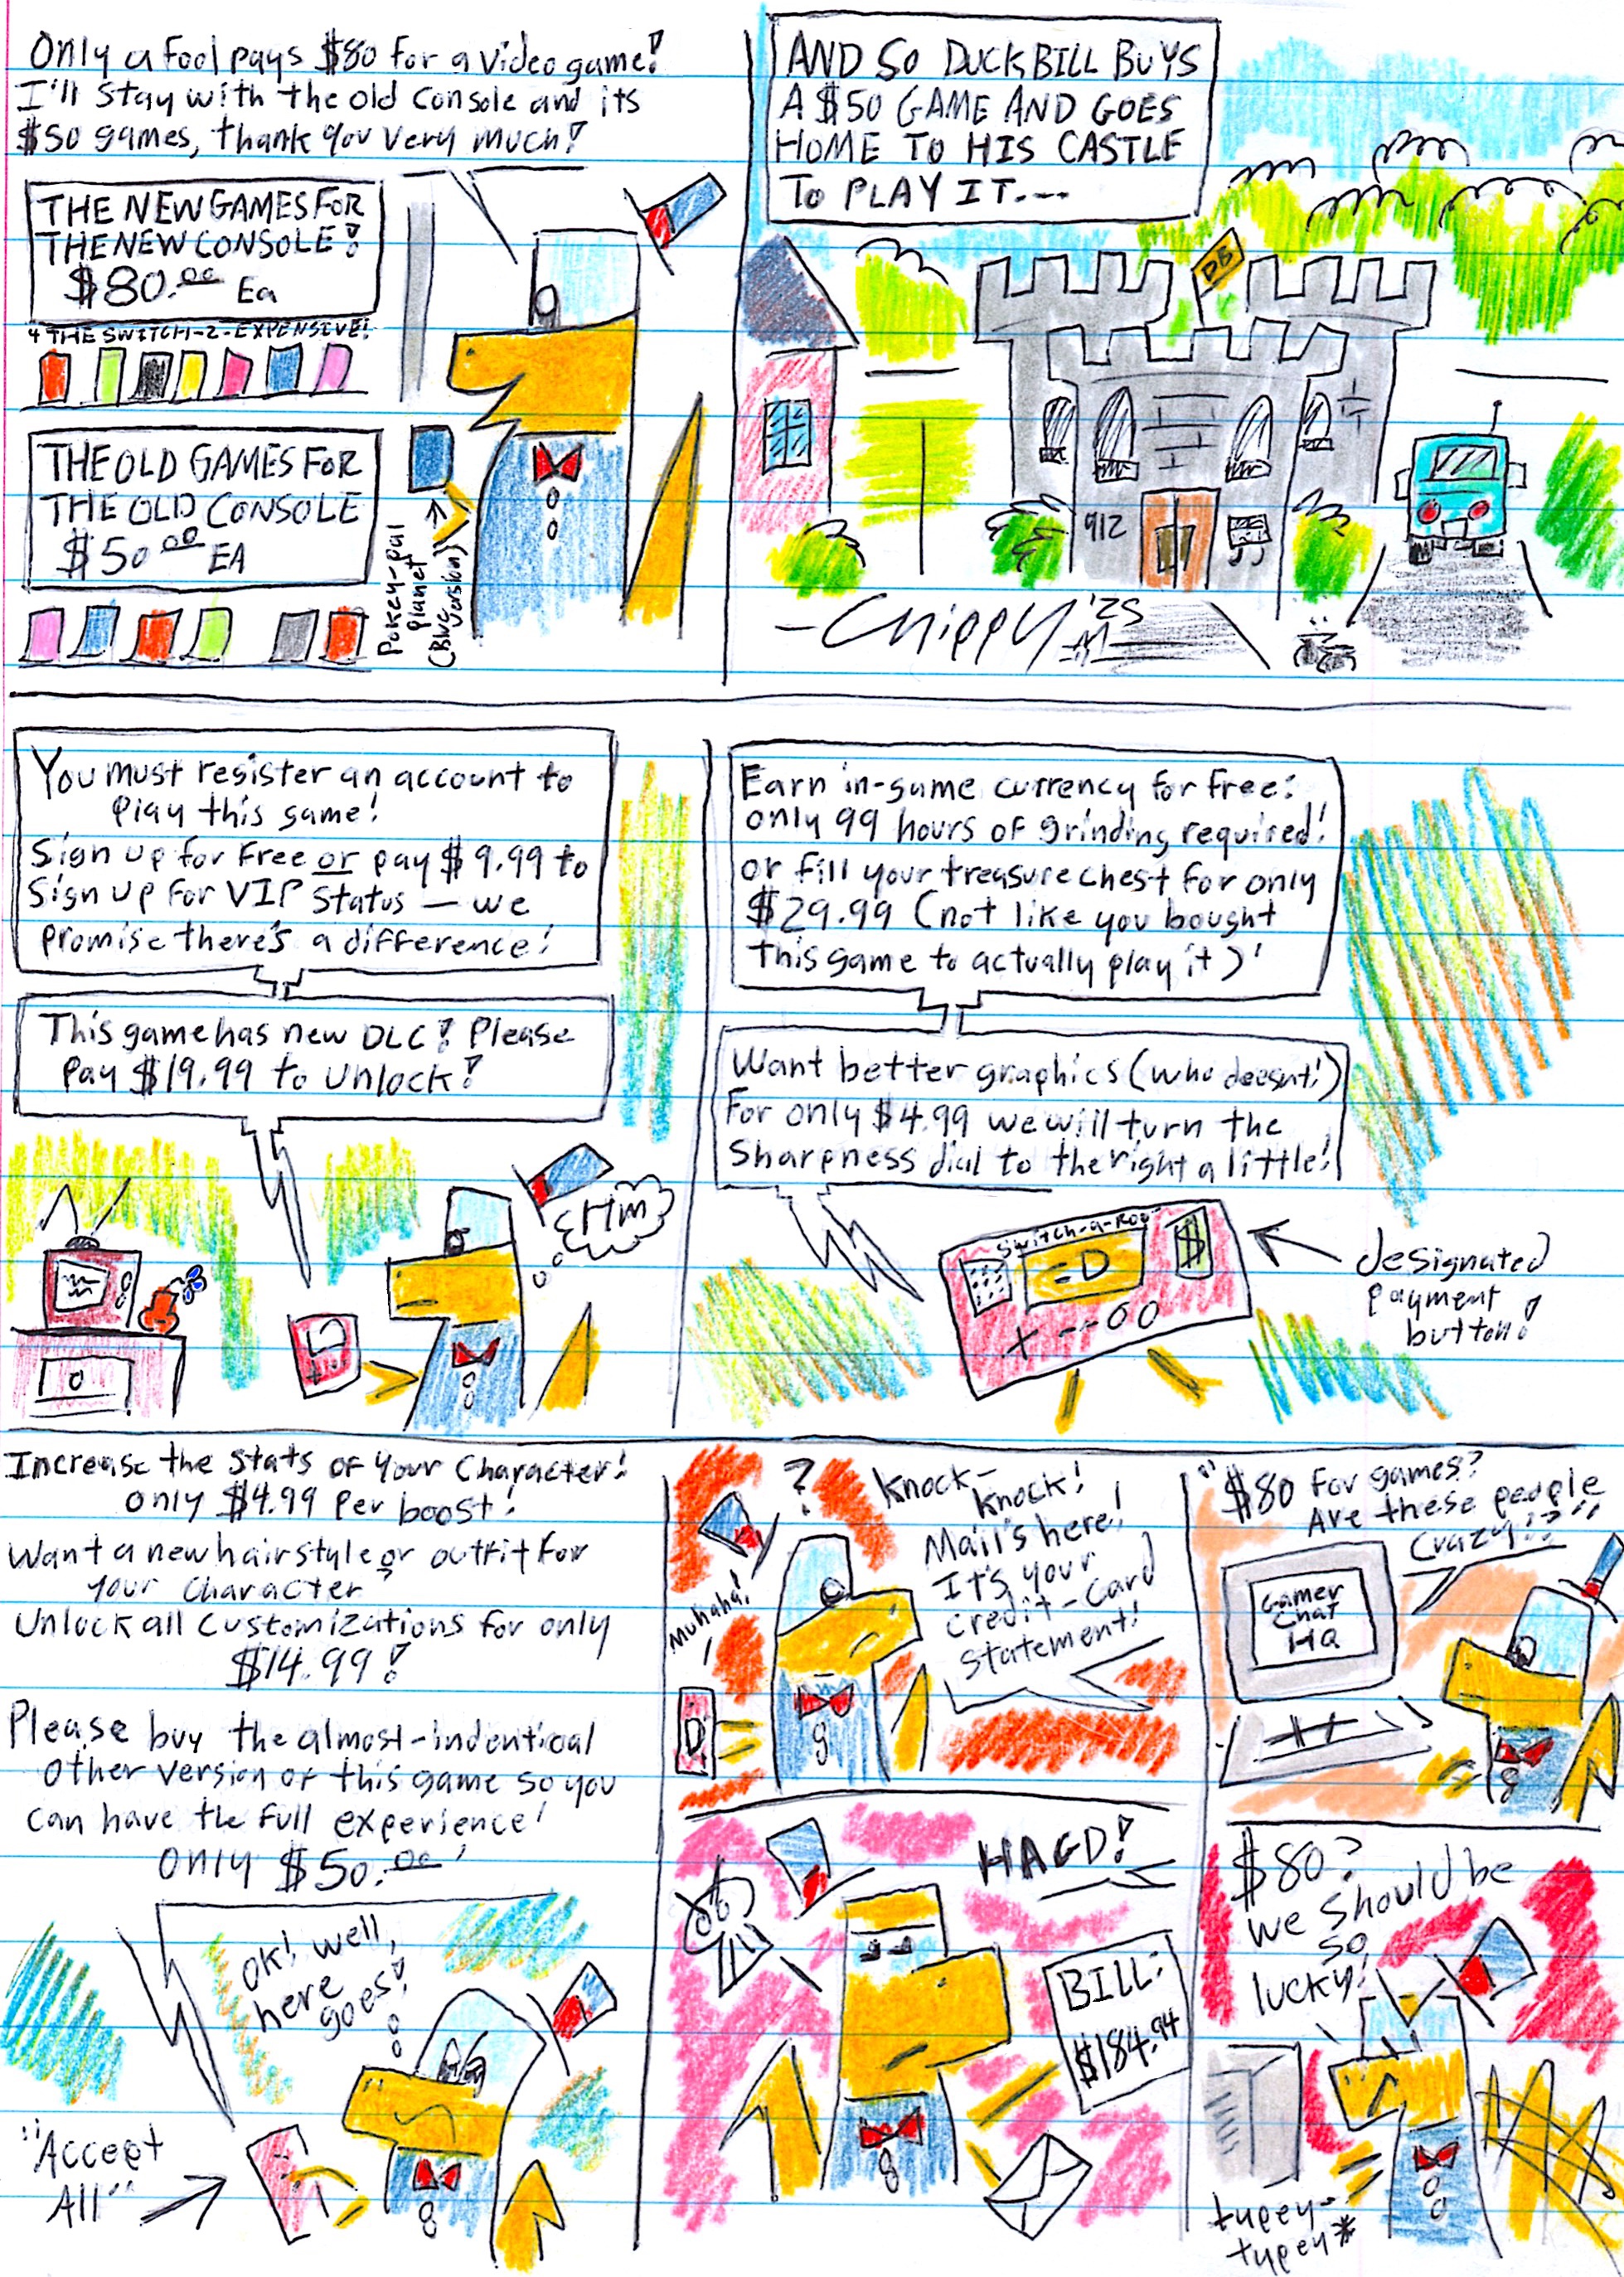 Only a fool pays $80 for a video game!
I'll stay with the old console and its
$50 games, thank you very much!
THE NEW GAMES FOR
THE NEW CONSOLE!
$80.00 Ea
4 THE SWITCH-2-EXPENSIVE!
THE OLD GAMES FOR
THE OLD CONSOLE
$50.00 EA
Pokey-pal
planet
(Blue
version)
AND SO DUCKBILL BUYS
A $50 GAME AND GOES
HOME TO HIS CASTLE
TO PLAY IT...
DB
912
-Chippy '25
#1
You must register an account to
play this game!
Sign up for free or pay $9.99 to
Sign up for VIP status — we
promise there's a difference!
This game has new DLC! Please
pay $19.99 to unlock!
Hm
Earn in-game currency for free:
only 99 hours of grinding required!
or fill your treasure chest for only
$29.99 (not like you bought
this game to actually play it)!
Want better graphics (who doesent!)
For only $4.99 we will turn the
sharpness dial to the right a little!
Switch-a-Roo
=D
$
designated
payment
button!
Increase the stats of your character!
only $4.99 per boost!
Want a new hairstyle or outfit for
your character?
Unlock all customizations for only
$14.99!
Please buy the almost-indentical
other version of this game so you
can have the full experience!
only $50.00!
OK! well,
here
goes!
"Accept
All"
?
Knock-
knock!
Mail's here!
It's your
credit-card
statement!
Muhaha!
D
HAGD!
BILL:
$184.94
"$80 for games?
Are these people
crazy!?"
Gamer
Chat
HQ
$80?
we should be
so
lucky!
typey-
typey*